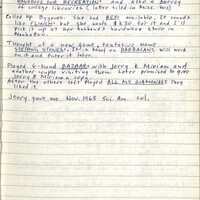 HANDBOOK FOR RECREATION! and also a survey
of college libraries (later filed in Misc. box)
Called up Bygones. She had BEN! available, it sounds
like FLINCH! but she wants $3.50 for it and I'll
pick it up at her husband's hardware store in
Manhattan.
Thought of a new game, tentative name
STEPPING STONES! Idea based on BARBARIANS will work
on it and enter it later.
Played 6-hand BAZAAR! with Jerry & Miriam and
another couple visiting them. Later promised to give
Jerry & Miriam a copy.
After the others left played ALL MY DIAMONDS! They
liked it.
Jerry gave me Nov. 1965 Sci. Am. tol.